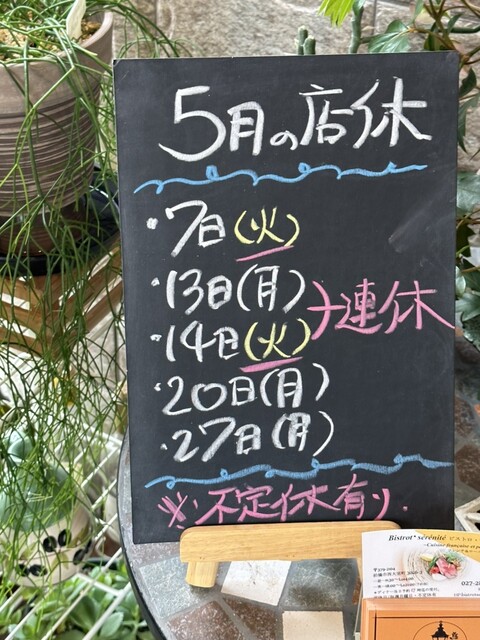 5月の店休
・7日(火)
・13日(月)
・14日(火)
}連休
・20日(月)
・27日(月)
※不定休有り.
Bistrot* sérénité ビストロ